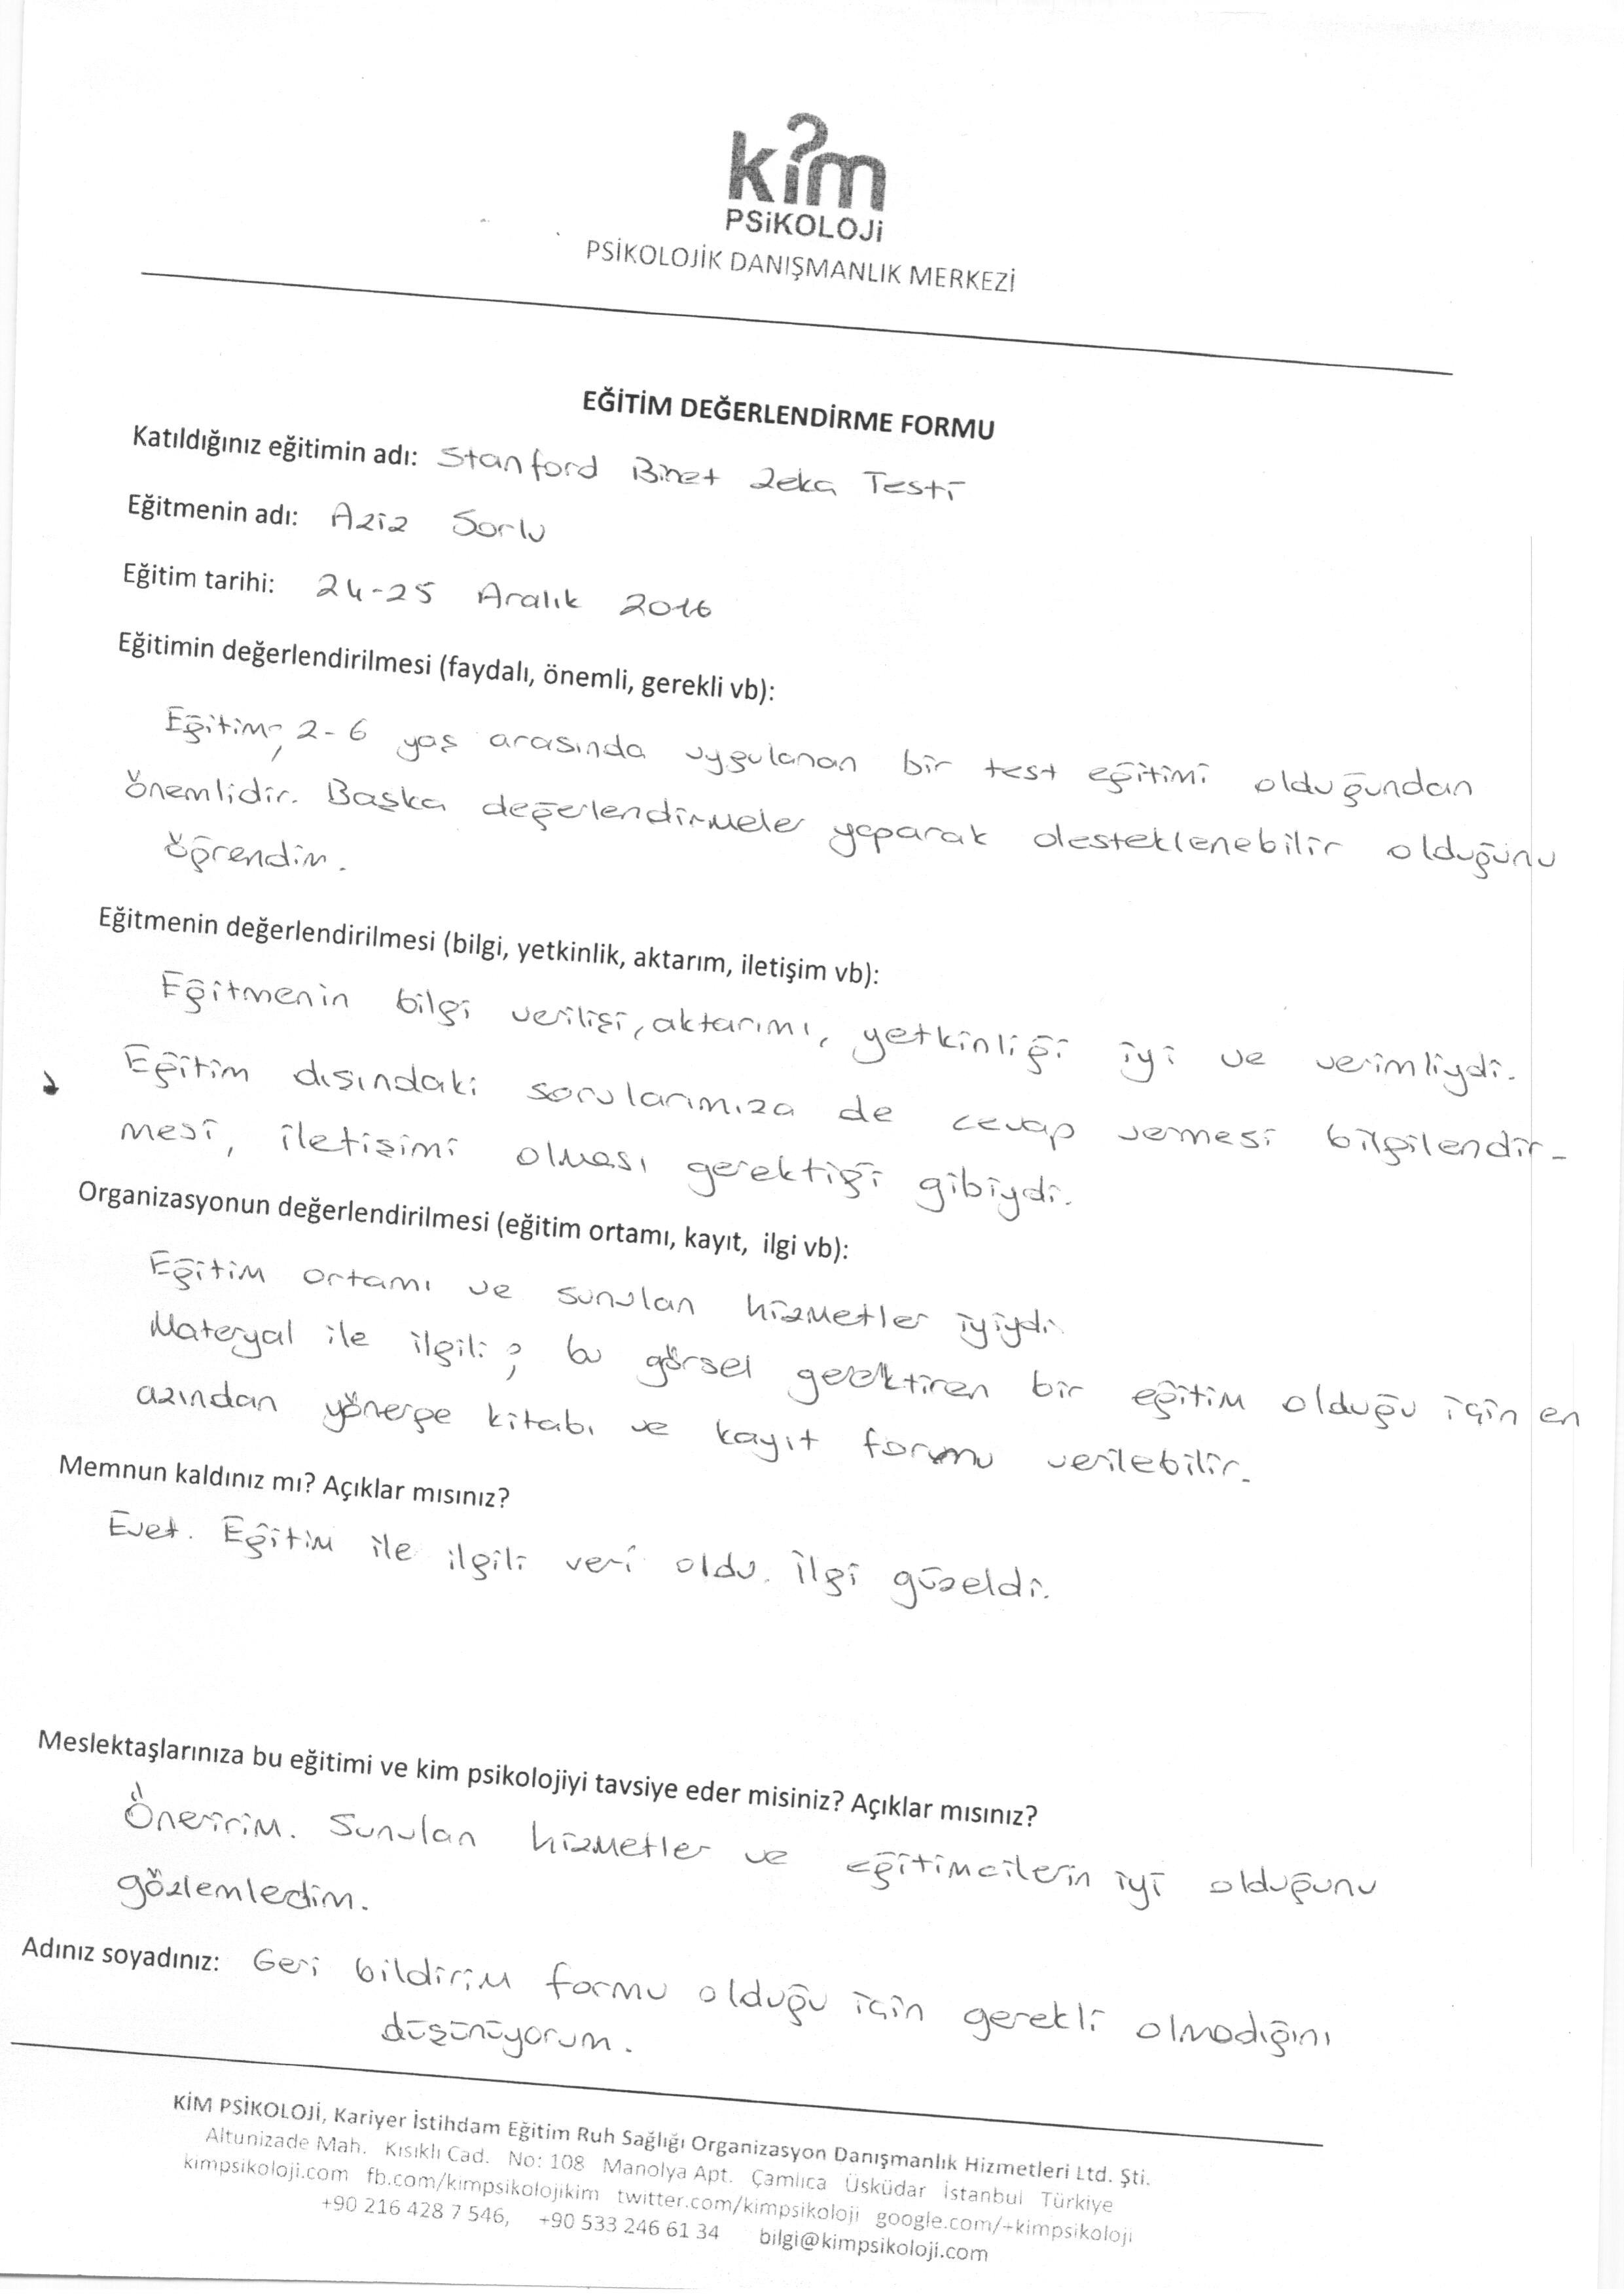 kim
PSiKOLOJi
PSİKOLOJİK DANIŞMANLIK MERKEZİ
EĞİTİM DEĞERLENDİRME FORMU
Katıldığınız eğitimin adı: Stanford Binet Zeka Testi
Eğitmenin adı: Aziz Sorlu
Eğitim tarihi: 24-25 Aralık 2016
Eğitimin değerlendirilmesi (faydalı, önemli, gerekli vb):
Eğitim; 2-6 yaş arasında uygulanan bir test eğitimi olduğundan
önemlidir. Başka değerlendirmeler yaparak desteklenebilir olduğunu
öğrendim.
Eğitmenin değerlendirilmesi (bilgi, yetkinlik, aktarım, iletişim vb):
Eğitmenin bilgi verilişi, aktarımı, yetkinliği iyi ve verimliydi.
Eğitim dışındaki sorularımıza de cevap vermesi bilgilendir-
mesi, iletişimi olması gerektiği gibiydi.
Organizasyonun değerlendirilmesi (eğitim ortamı, kayıt, ilgi vb):
Eğitim ortamı ve sunulan hizmetler iyiydi.
Materyal ile ilgili; bu görsel gerektiren bir eğitim olduğu için en
azından yönerge kitabı ve kayıt formu verilebilir.
Memnun kaldınız mı? Açıklar mısınız?
Evet. Eğitim ile ilgili veri oldu. İlgi güzeldi.
Meslektaşlarınıza bu eğitimi ve kim psikolojiyi tavsiye eder misiniz? Açıklar mısınız?
Öneririm. Sunulan hizmetler ve eğitimcilerin iyi olduğunu
gözlemledim.
Adınız soyadınız: Geri bildirim formu olduğu için gerekli olmadığını
düşünüyorum.
KİM PSİKOLOJİ, Kariyer İstihdam Eğitim Ruh Sağlığı Organizasyon Danışmanlık Hizmetleri Ltd. Şti.
Altunizade Mah. Kısıklı Cad. No: 108 Manolya Apt. Çamlıca Üsküdar İstanbul Türkiye
kimpsikoloji.com fb.com/kimpsikolojikim twitter.com/kimpsikoloji google.com/+kimpsikoloji
+90 216 428 7 546, +90 533 246 61 34 bilgi@kimpsikoloji.com